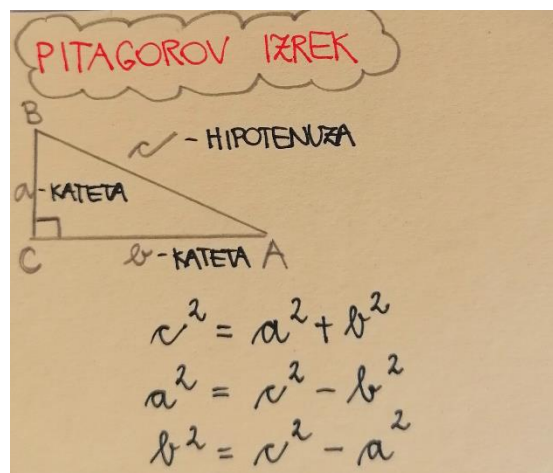 PITAGOROV IZREK
B
c - HIPOTENUZA
a - KATETA
C
b - KATETA A
c² = a² + b²
a² = c² - b²
b² = c² - a²